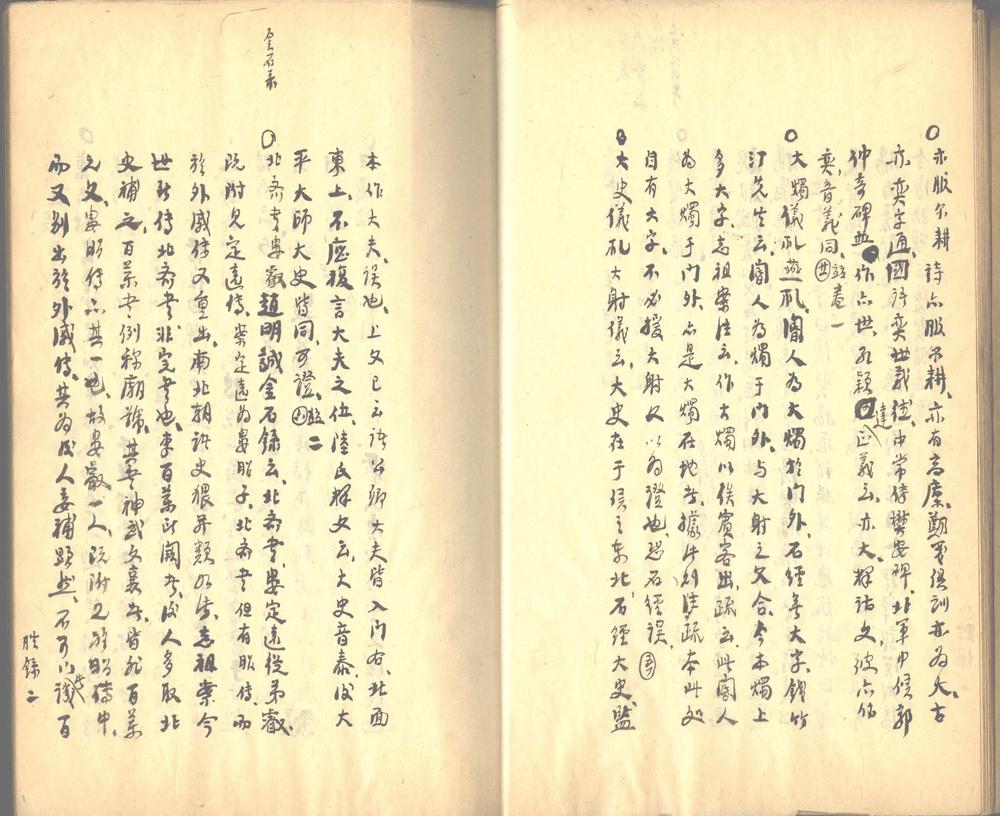 ○亦服尔耕 詩亦服尔耕、亦有高廩、鄭箋俱訓亦為大、古
亦奕字通、國語奕世載德、中常侍樊安碑、北軍中候郭
仲奇碑並作亦世、孔穎達正義云、亦大、釋詁文、彼亦作
奕、音義同、卷一
○大燭 儀礼燕礼、閽人為大燭於門外、石經無大字、錢竹
汀先生云、閽人為燭于門外、与大射之文合、今本燭上
多大字、志祖案注云、作大燭以俟賓客出、疏云、此閽人
為大燭于門外、亦是大燭在地者、據此則注疏本此処
自有大字、不必援大射文以為證也、恐石經誤、
○大史 儀礼大射儀云、大史在于侯之東北、石經大史、監
本作大夫、誤也、上文已云諸公卿大夫皆入門右、北面
東上、不應復言大夫之位、陸氏釋文云、大史音泰、後大
平大師大史皆同、可證、二
金石录
○北齊書婁叡 趙明誠金石錄云、北齊書、婁定遠從弟叡、
既附見定遠傳、案定遠為婁昭子、北齊書但有昭傳、而
於外戚傳又重出、南北朝諸史猥并類如此、志祖案今
世所傳北齊書、非完書也、李百藥所闕者、後人多取北
史補之、百藥書例稱廟號、其書神武文襄者、皆非百藥
之文、婁昭傳亦其一也、故婁叡一人、既附見於昭傳中、
而又別出於外戚傳、其為後人妄補顯然、不可以譏百
脞録二